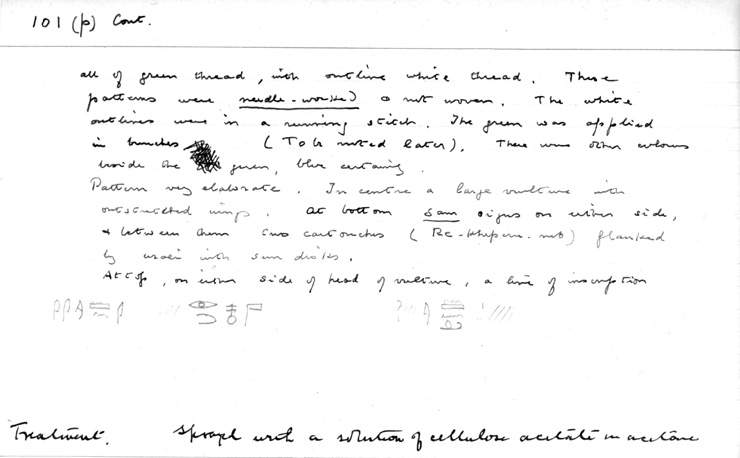 101 (p) Cont.
all of green thread, with outline white thread. These
patterns were needle-worked & not woven. The white
outlines were in a running stitch. The green was applied
in bunches (To be noted later). There were other colours
beside the green, blue certainly.
Pattern very elaborate. In centre a large vulture with
outstretched wings. At bottom sam signs on either side,
& between them two cartouches (Re-kheperu-neb) flanked
by uraei with sun disks.
At top, on either side of head of vulture, a line of inscription
Treatment. Sprayed with a solution of cellulose acetate in acetone